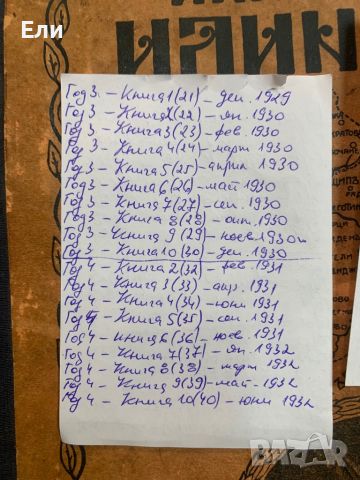 Ели
ИЛИН
Год 3. – Книга 1 (21) – дек. 1929
Год 3 – Книга 2 (22) – ян. 1930
Год 3 – Книга 3 (23) – фев. 1930
Год 3 – Книга 4 (24) – март 1930
Год 3 – Книга 5 (25) – април 1930
Год 3 – Книга 6 (26) – май 1930
Год 3 – Книга 7 (27) – сеп. 1930
Год 3 – Книга 8 (28) – окт. 1930
Год 3 – Книга 9 (29) – ноев. 1930
Год 3 – Книга 10 (30) – дек. 1930
Год 4 – Книга 2 (32) – фев. 1931
Год 4 – Книга 3 (33) – апр. 1931
Год 4 – Книга 4 (34) – юни 1931
Год 4 – Книга 5 (35) – сеп. 1931
Год 4 – Книга 6 (36) – ноев. 1931
Год 4 – Книга 7 (37) – ян. 1932
Год 4 – Книга 8 (38) – март 1932
Год 4 – Книга 9 (39) – май – 1932
Год 4 – Книга 10 (40) – юни 1932
bazar